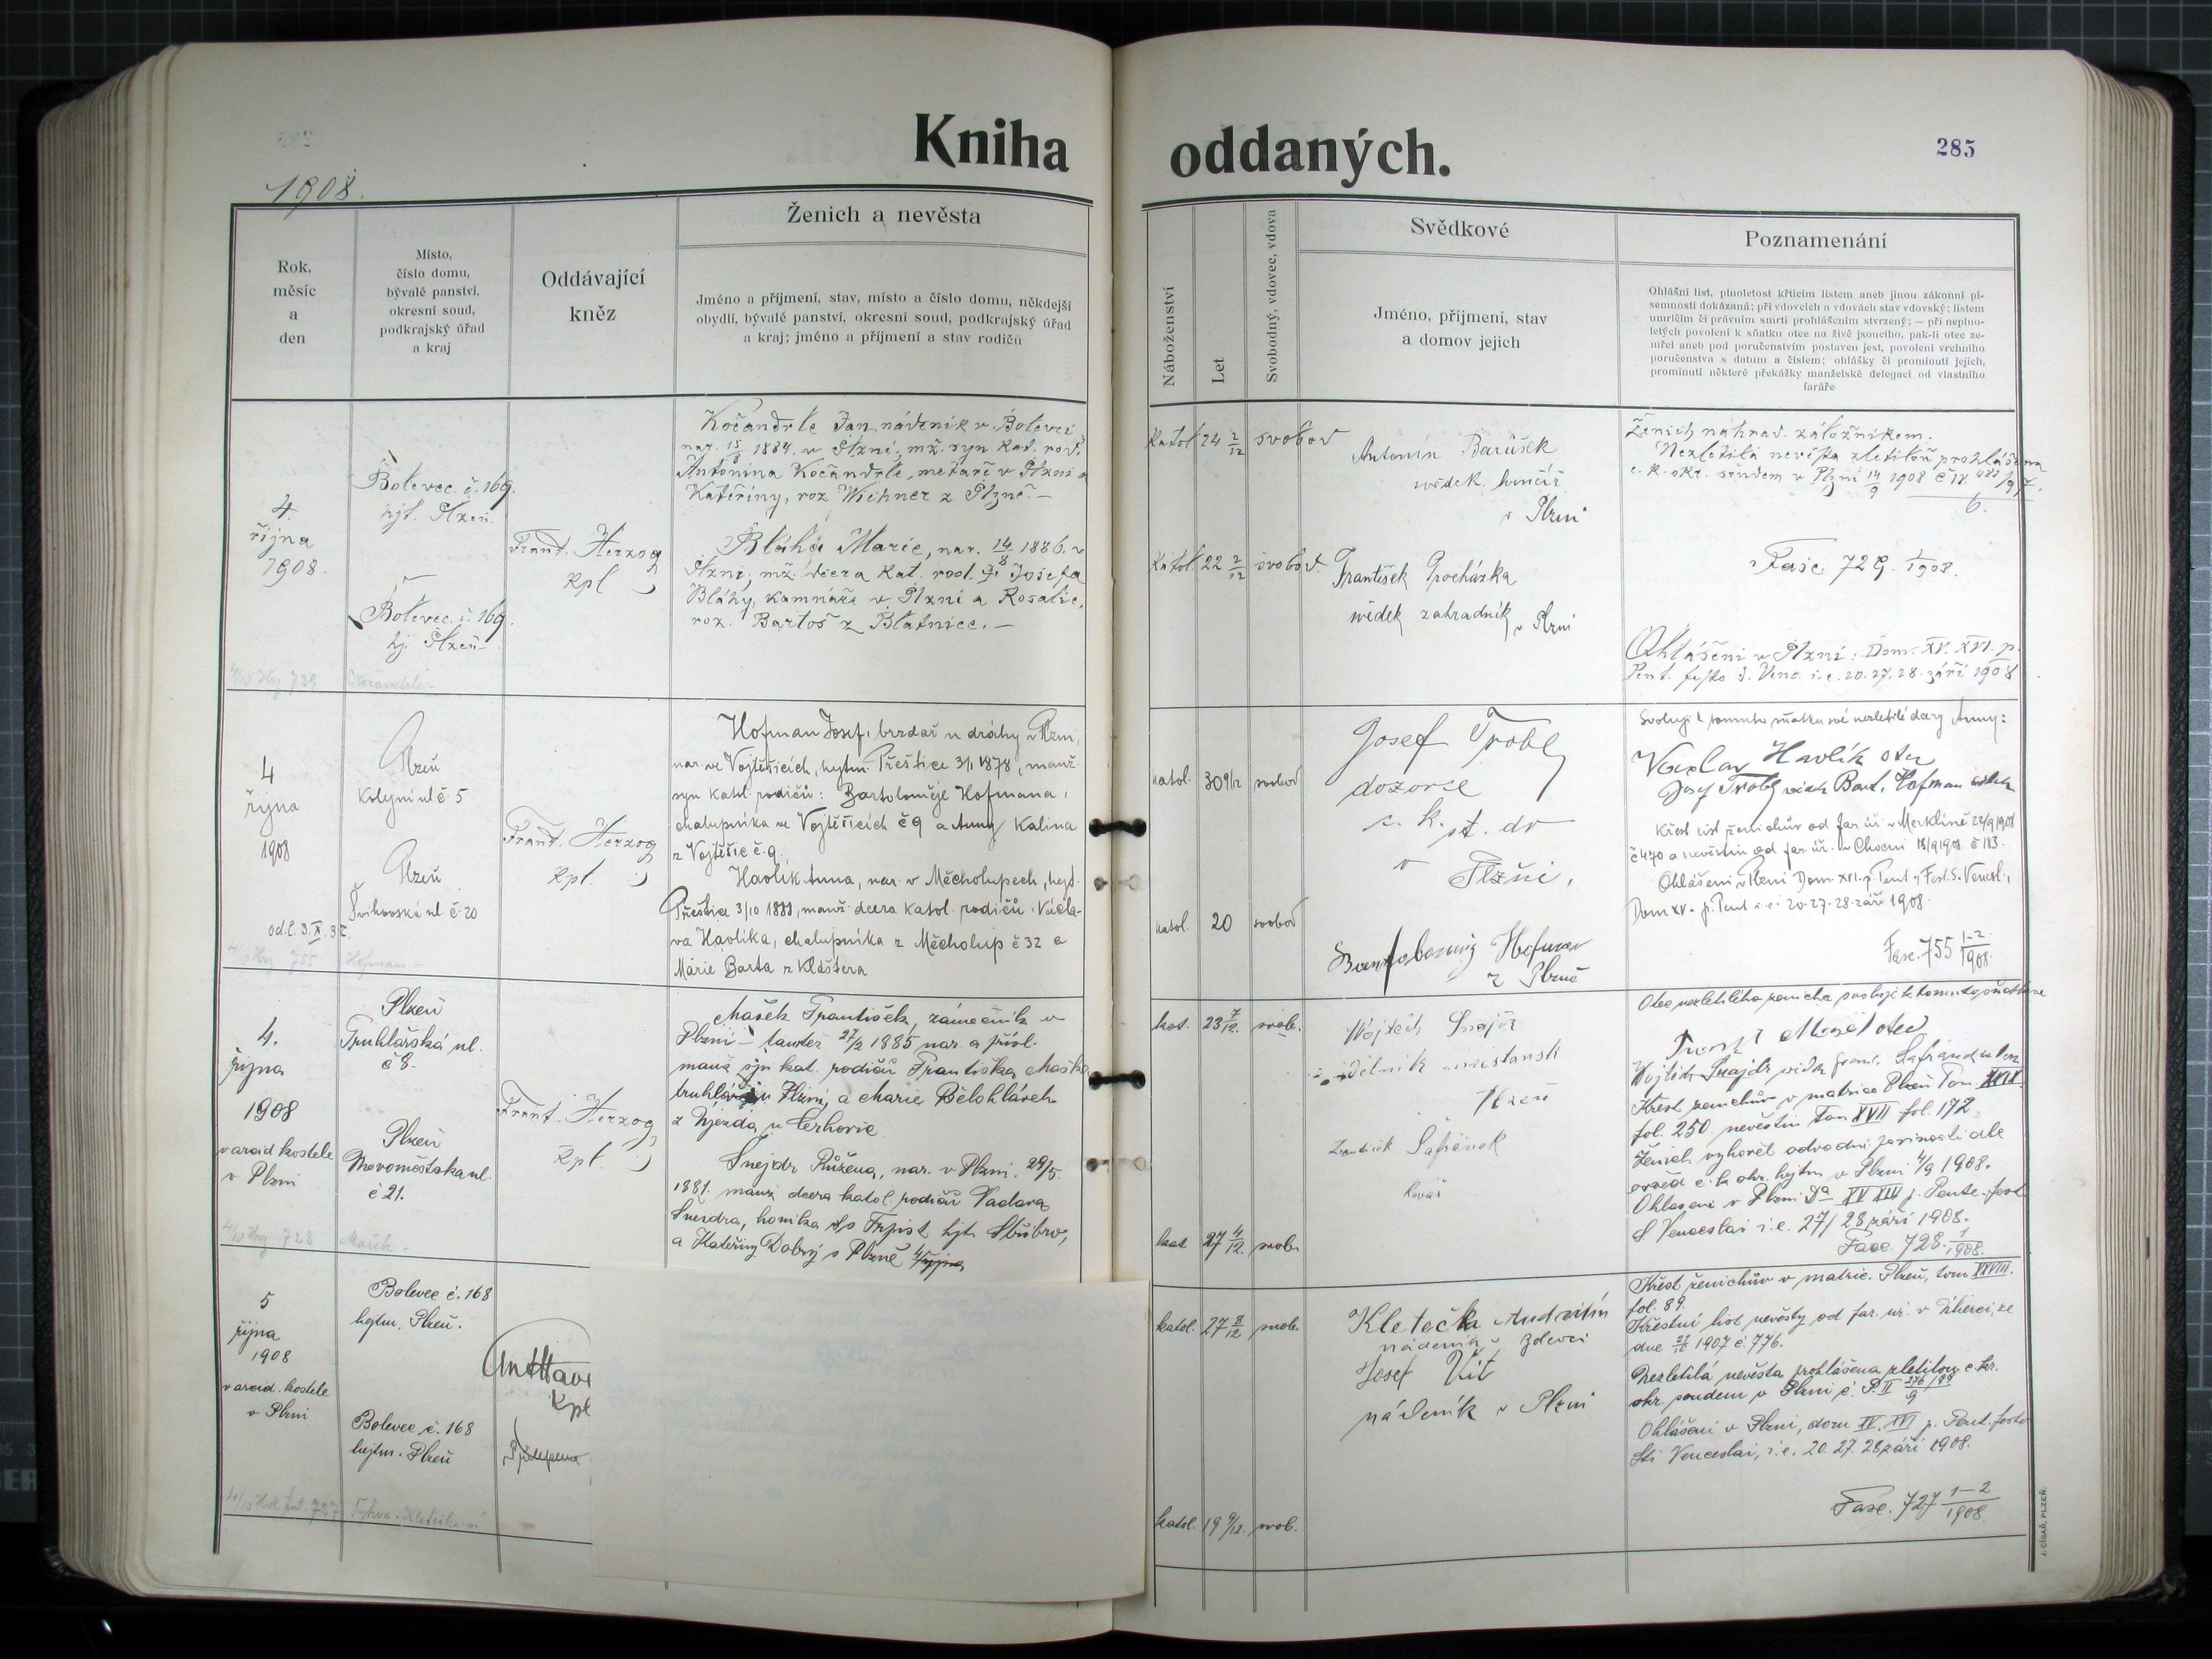 Kniha oddaných.
285
1908.
Rok,
měsíc
a
den
Místo,
číslo domu,
bývalé panství,
okresní soud,
podkrajský úřad
a kraj
Oddávající
kněz
Ženich a nevěsta
Jméno a příjmení, stav, místo a číslo domu, někdejší
obydlí, bývalé panství, okresní soud, podkrajský úřad
a kraj; jméno a příjmení a stav rodičů
Náboženství
Let
Svobodný, vdovec, vdova
Svědkové
Jméno, příjmení, stav
a domov jejich
Poznamenání
Ohlášní list, plnoletost křticím listem aneb jinou zákonní pí-
semností dokázaná; při vdovcích a vdovách stav vdovský; listem
umrlčím či právním smrti prohlášením stvrzený; — při neplno-
letých povolení k sňatku otce na živě jsoucího, pak-li otec ze-
mřel aneb pod poručenstvím postaven jest, povolení vrchního
poručenstva s datum a číslem; ohlášky či prominutí jejich,
prominutí některé překážky manželské delegací od vlastního
faráře
4.
října
1908.
Bolevec č. 169.
hjt. Plzeň.
Bolevec č. 169.
hj. Plzeň
Frant. Herzog
kpl
Kočandrle Jan nádeník v Bolevci
nar. 15/8 1884 v Plzni, mž. syn kat. rod.
Antonína Kočandrle, metaře v Plzni a
Kateřiny, roz Wichner z Plzně. —
Bláha Marie, nar. 14/8 1886 v
Plzni, mž. dcera kat. rod. Josefa
Bláhy, kamnáře v Plzni a Rosalie,
roz. Bartoš z Blatnice. —
katol. 24 2/12 svobod
katol. 22 2/12 svobod.
Antonín Barušek
svědek
v Plzni
František Procházka
svědek zahradník
v Plzni
Ženich náhrad. záložníkem.
Nezletilá nevěsta zletilou prohlášena
c. k. okr. soudem v Plzni 14/9 1908
Fasc. 729. 1/1908.
Ohlášeni v Plzni: Dom. XV. XVI. p.
Pent. festo S. Venc. i. e. 20. 27. 28. září 1908
4
října
1908
Plzeň
č 5
Plzeň
č 20
Frant. Herzog
kpl.
Hofman Josef, brzdař u dráhy v Plzni,
nar. ve Vojtěšicích, hejtm. Přeštice 3/1 1878, manž.
syn katol. rodičů: Bartoloměje Hofmana,
chalupníka ve Vojtěšicích č 9 a Anny Kalina
z Vojtěšic č. 9
Havlík Anna, nar. v Měcholupech, hejt.
Přeštice 3/10 1888, manž. dcera katol. rodičů Václa-
va Havlíka, chalupníka z Měcholup č 32 a
Marie Barta z Kláštera
katol. 30 9/12 svobod
katol. 20 svobod
Josef Trobl
dozorce
c. k. st. dr
v
Plzni,
Hofman
z Plzně
Svoluji k tomuto sňatku své nezletilé dcery Anny:
Václav Havlík otec
Josef Trobl svědek Bart. Hofman svědek
Křest. list ženichův od far. úř. v Merklíně 22/9 1908
č 470 a nevěstin od far. úř. 18/9 1908 č 183.
Ohlášeni v Plzni Dom XVI. p. Pent. Fest. S. Vencesl.,
Dom XV. p. Pent i. e. 20-27-28 září 1908.
Fasc. 755 1-2/1908.
4.
října
1908
v arcid. kostele
v Plzni
Plzeň
Truhlářská ul.
č 8.
Plzeň
Novoměstská ul.
č 21.
Frant. Herzog
kpl.
Mašek František, zámečník v
Plzni — tamtéž 27/2 1885 nar. a přísl.
manž. syn kat. rodičů Františka Maška
truhláře v Plzni, a Marie Bělohlávek
z Újezda u Cerhovic.
Šnejdr Růžena, nar. v Plzni 29/5
1881. manž. dcera katol. rodičů Václava
Šnejdra, horníka
a Kateřiny Dobrý z Plzně
kat. 23 7/12. svob.
kat 27 4/12. svob.
Vojtěch Šnajdr
dělník
Plzeň
Šafránek
kovář
Otec nezletilého ženicha svoluje k tomuto sňatku
Mašek otec
Vojtěch Šnajdr svědk
Křest. ženichův v matrice Plzeň Tom. XVII
fol. 250. nevěstin Tom XVII fol. 172.
Ženich vyhověl odvodní povinnosti dle
osvěd. c. k. okr. hejtm v Plzni 4/9 1908.
Ohlášeni v Plzni
S Venceslai i. e. 27/ 28 září 1908.
Fasc. 728. 1/1908.
5
října
1908
v arcid. kostele
v Plzni
Bolevec č. 168
hejtm. Plzeň.
Bolevec č. 168
hejtm. Plzeň
kpl
katol. 27 8/12 svob.
katol. 19 9/12. svob.
Kletečka
nádeník
Josef Vít
nádeník v Plzni
Křest ženichův v matric. Plzeň, tom XXVIII.
fol. 89.
Křestní list nevěsty od far. úř. v
dne 1907 č. 776.
Nezletilá nevěsta prohlášena zletilou c. kr.
okr. soudem v Plzni
Ohlášeni v Plzni, dom XV. XVI p. Pent. festo
Sti Venceslai, i. e. 20. 27. 28 září 1908.
Fasc. 727 1-2/1908.
J. CÍSAŘ, PLZEŇ.